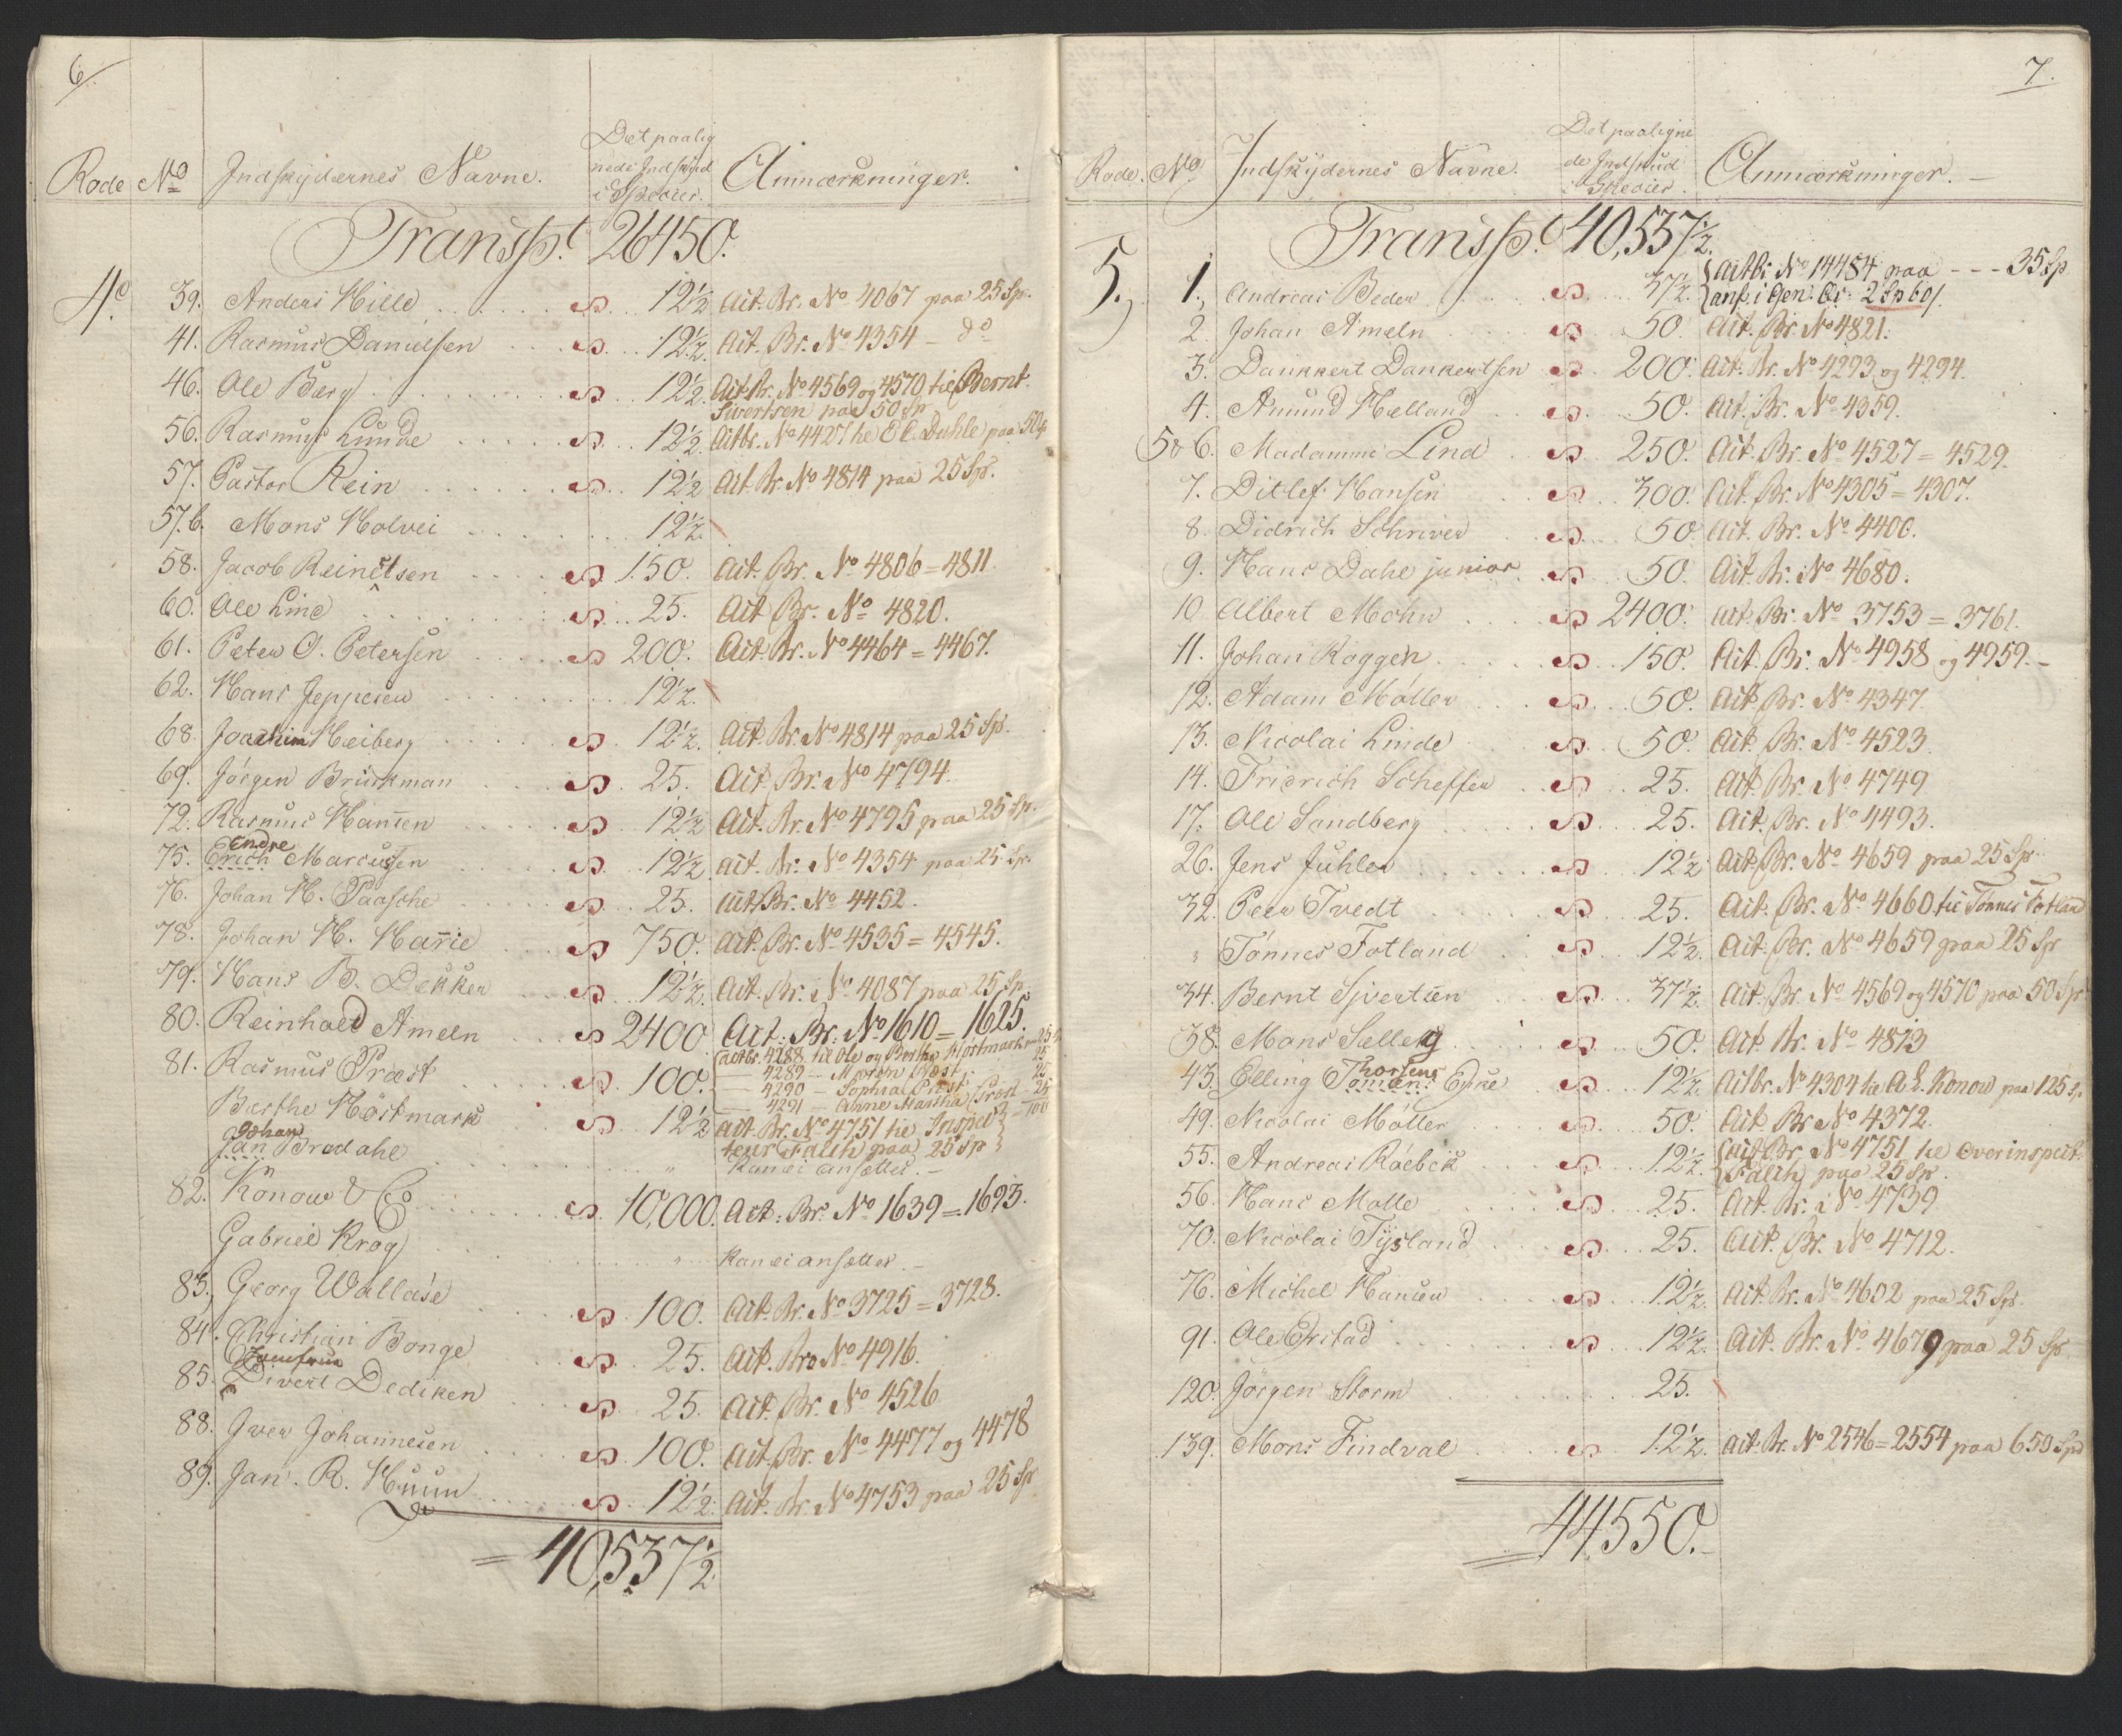 6.
Rode No Indskydernes Navne. Det paalig
nede Indskud
i Specier. Anmærkninger.
Transpt. 26450.
4. 39. Anders Hille 12½ Act. Br. No 4067 paa 25 Sp.
41. Rasmus Danielsen 12½ Act. Br. No 4354 - do
46. Ole Berg 12½ Act. Br. No 4569 og 4570 til Bernt
Sivertsen paa 50 Sp
56. Rasmus Lunde 12½ Actbr. No 4427 til Dahle paa 50 Sp
57. Pastor Rein 12½ Act. Br. No 4814 paa 25 Sp.
57.b. Mons Holvei 12½
58. Jacob Reinertsen 150. Act. Br. No 4806 = 4811
60. Ole Line 25. Act. Br. No 4820.
61. Peter O. Petersen 200. Act. Br. No 4464 = 4467.
62. Hans Jeppesen 12½.
68. Joachim Heiberg 12½. Act. Br. No 4814 paa 25 Sp.
69. Jørgen Brinkman 25. Act. Br. No 4794.
72. Rasmus Hansen 12½ Act. Br. No 4795 paa 25 Sp.
Endre
75. Erich Marcussen 12½ Act. Br. No 4354 paa 25 Sp.
76. Johan H. Paasche 25. Act. Br. No 4452.
78. Johan H. Harrie 750. Act. Br. No 4535 = 4545.
79. Hans B. Dekker 12½. Act. Br. No 4087 paa 25 Sp.
80. Reinhold Ameln 2400 Act. Br. No 1610 = 1625.
81. Rasmus Præst 100. Actbr. 4288 til Ole og Berthe Høstmark 25
— 4289 — 25
— 4290 — Sophia Præst 25
— 4291 — Anne Martha Præst 25
100
Berthe Høstmark 12½ Act. Br. No 4751 til Inspec
teur Falch paa 25 Sp
Johan
Jan Bredahl " Kan ei ansættes. —
82. Konow & Co 10,000. Act: Br. No 1639 = 1693.
Gabriel Krog " Kan ei ansættes. —
83. Georg Wallase 100. Act. Br. No 3725 = 3728.
84. Christian Bonge 25. Act. Br. No 4916.
Jomfrue
85. Divert Dediken 25. Act. Br. No 4526
88. Iver Johannesen 100. Act. Br. No 4477 og 4478
89. Jan. R. Huun 12½. Act. Br. No 4753 paa 25 Sp
= 40,537½
7.
Rode. No Indskydernes Navne. Det paaligne
de Indskud
i Specier. Anmærkninger. —
Transpt. 40,537½
5. 1. Andreas Beder 37½. Actbr. No 14484 paa - - - 35 Sp
anf. i Gen. 2 Sp 60 s.
2. Johan Ameln 50. Act. Br. No 4821.
3. Dankert Dankertsen 200. Act. Br. No 4293 og 4294.
4. Amund Helland 50. Act. Br. No 4359.
5 & 6. Madamme Lind 250. Act. Br. No 4527 = 4529.
7. Ditlef Hansen 300. Act. Br. No 4305 = 4307.
8. Didrich Schriver 50 Act. Br. No 4400.
9. Hans Dahl junior 50. Act. Br. No 4680.
10 Albert Mohn 2400. Act. Br. No 3753 = 3761.
11. Johan Roggen 150. Act. Br. No 4958 og 4959. —
12. Adam Møller 50. Act. Br. No 4347.
13. Nicolai Linde 50. Act. Br. No 4523
14. Fridrich Scheffer 25. Act. Br. No 4749
17. Ole Sandberg 25. Act. Br. No 4493.
26. Jens Juhler 12½ Act. Br. No 4659 paa 25 Sp
32. Peer Tvedt 25. Act. Br. No 4660 til Tønnes Fotland
" Tønnes Fotland 12½. Act. Br. No 4659 paa 25 Sp
34. Bernt Sivertsen 37½. Act. Br. No 4569 og 4570 paa 50 Sp
38. Mons Selleg 50. Act. Br. No 4813
Thorsens
43. Elling 12½. Actbr. No 4304 til A. L. Konow paa 125 Sp.
49. Nicolai Møller 50. Act. Br. No 4372.
55. Andreas Roebek 12½. Act. Br. No 4751 til Overinspect.
Falch paa 25 Sp.
56. Hans Molle 25. Act. Br. No 4739
70. Nicolai Tysland 25. Act. Br. No 4712.
76. Michel Hansen 12½. Act. Br. No 4602 paa 25 Sp.
91. Ole Erstad 12½. Act. Br. No 4679 paa 25 Sp.
120. Jørgen Storm 25.
139. Mons Findval 12½. Act. Br. No 2546 = 2554 paa 650 Spd
44550. —